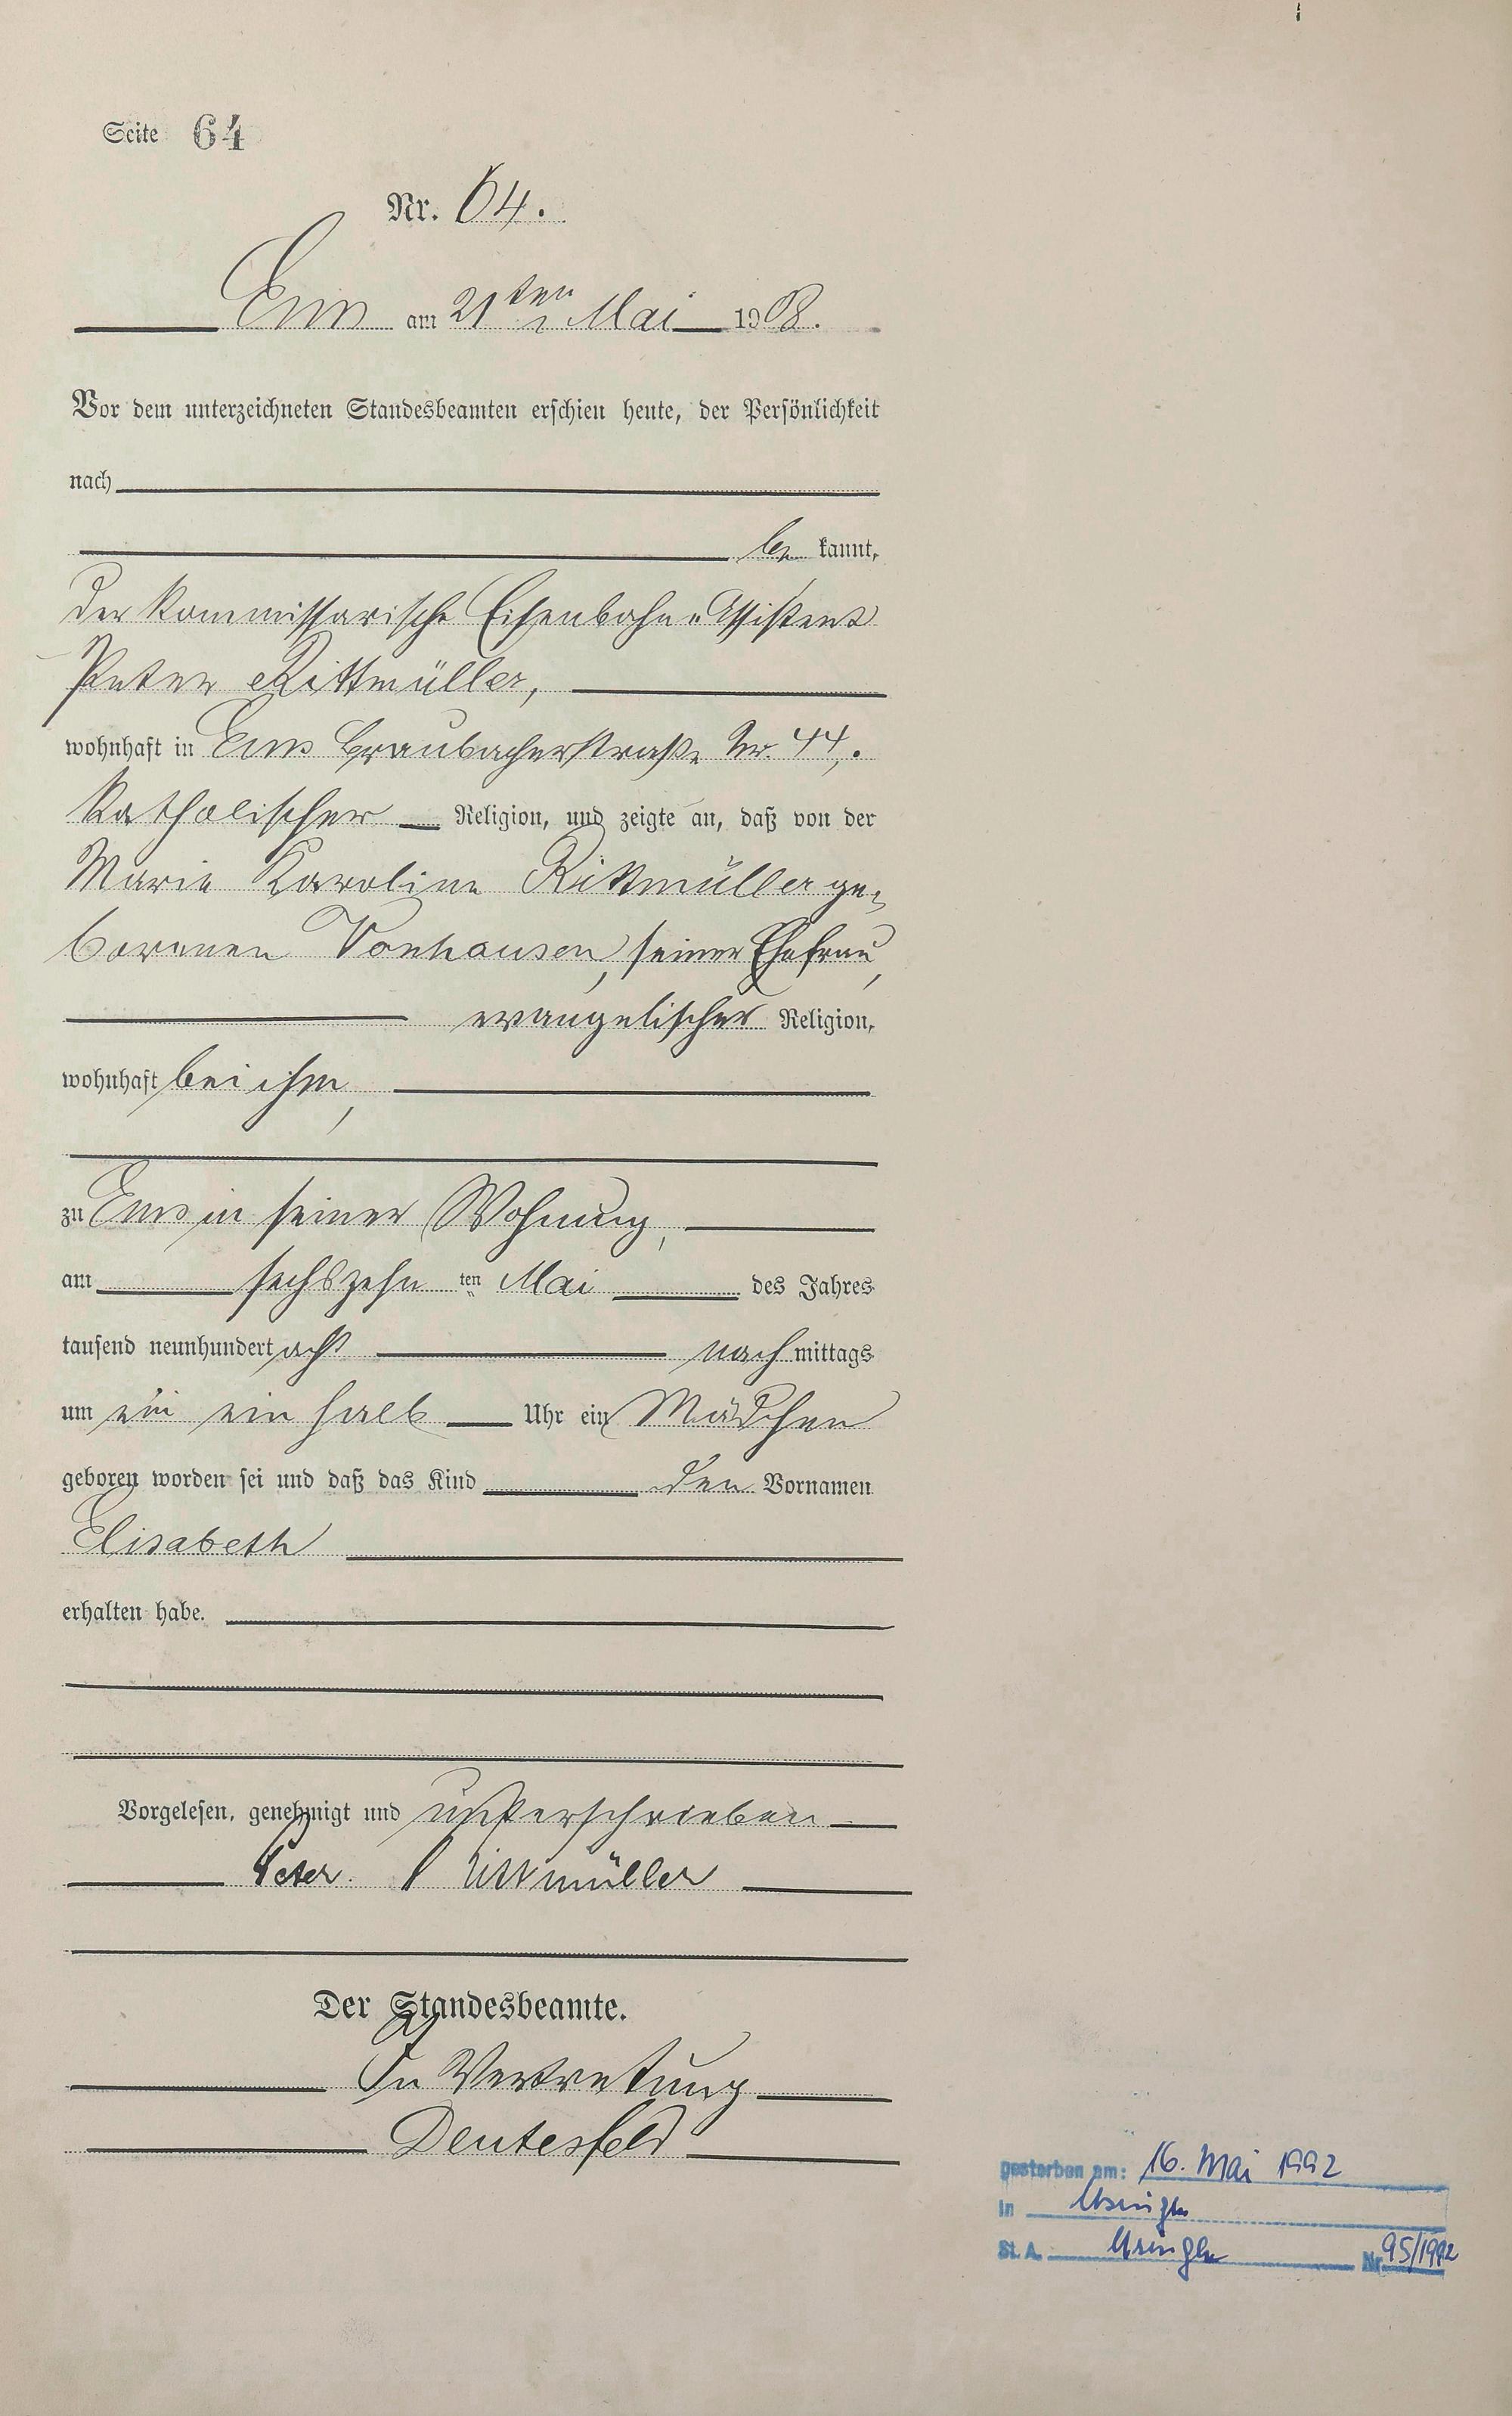 Seite 64
Nr. 64.
Ems am 21ten Mai 1908.
Vor dem unterzeichneten Standesbeamten erschien heute, der Persönlichkeit
nach
be kannt,
der kommissarische Eisenbahn-Assistent
Peter Rittmüller,
wohnhaft in Ems Braubacherstraße Nr. 44,
katholischer Religion, und zeigte an, daß von der
Marie Karoline Rittmüller ge-
borenen Vonhausen, seiner Ehefrau,
evangelischer Religion,
wohnhaft bei ihm,
zu Ems in seiner Wohnung,
am sechszehn ten Mai des Jahres
tausend neunhundert acht nach mittags
um ein ein halb Uhr ein Mädchen
geboren worden sei und daß das Kind den Vornamen
Elisabeth
erhalten habe.
Vorgelesen, genehmigt und unterschrieben
Peter Rittmüller
Der Standesbeamte.
In Vertretung
Deutesfeld
gestorben am: 16. Mai 1992
in Usingen
St. A. Usingen Nr. 95/1992